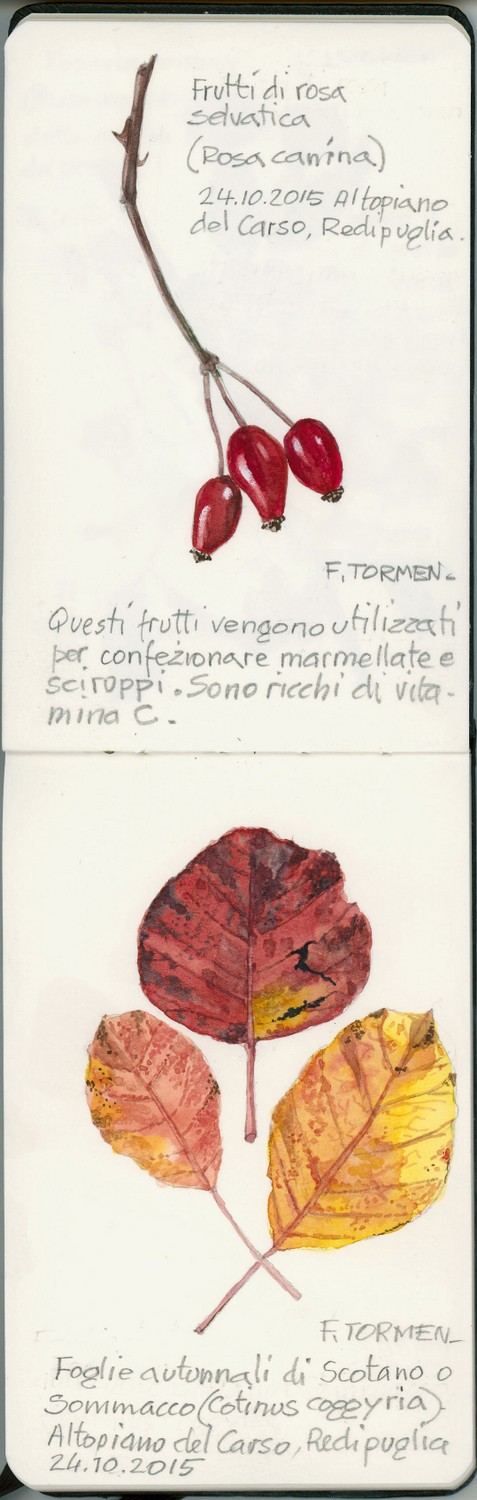 Frutti di rosa
selvatica
(Rosa canina)
24.10.2015 Altopiano
del Carso, Redipuglia.
F. TORMEN.
Questi frutti vengono utilizzati
per confezionare marmellate e
sciroppi. Sono ricchi di vita-
mina C.
F. TORMEN
Foglie autunnali di Scotano o
Sommacco (Cotinus coggyria).
Altopiano del Carso, Redipuglia
24.10.2015